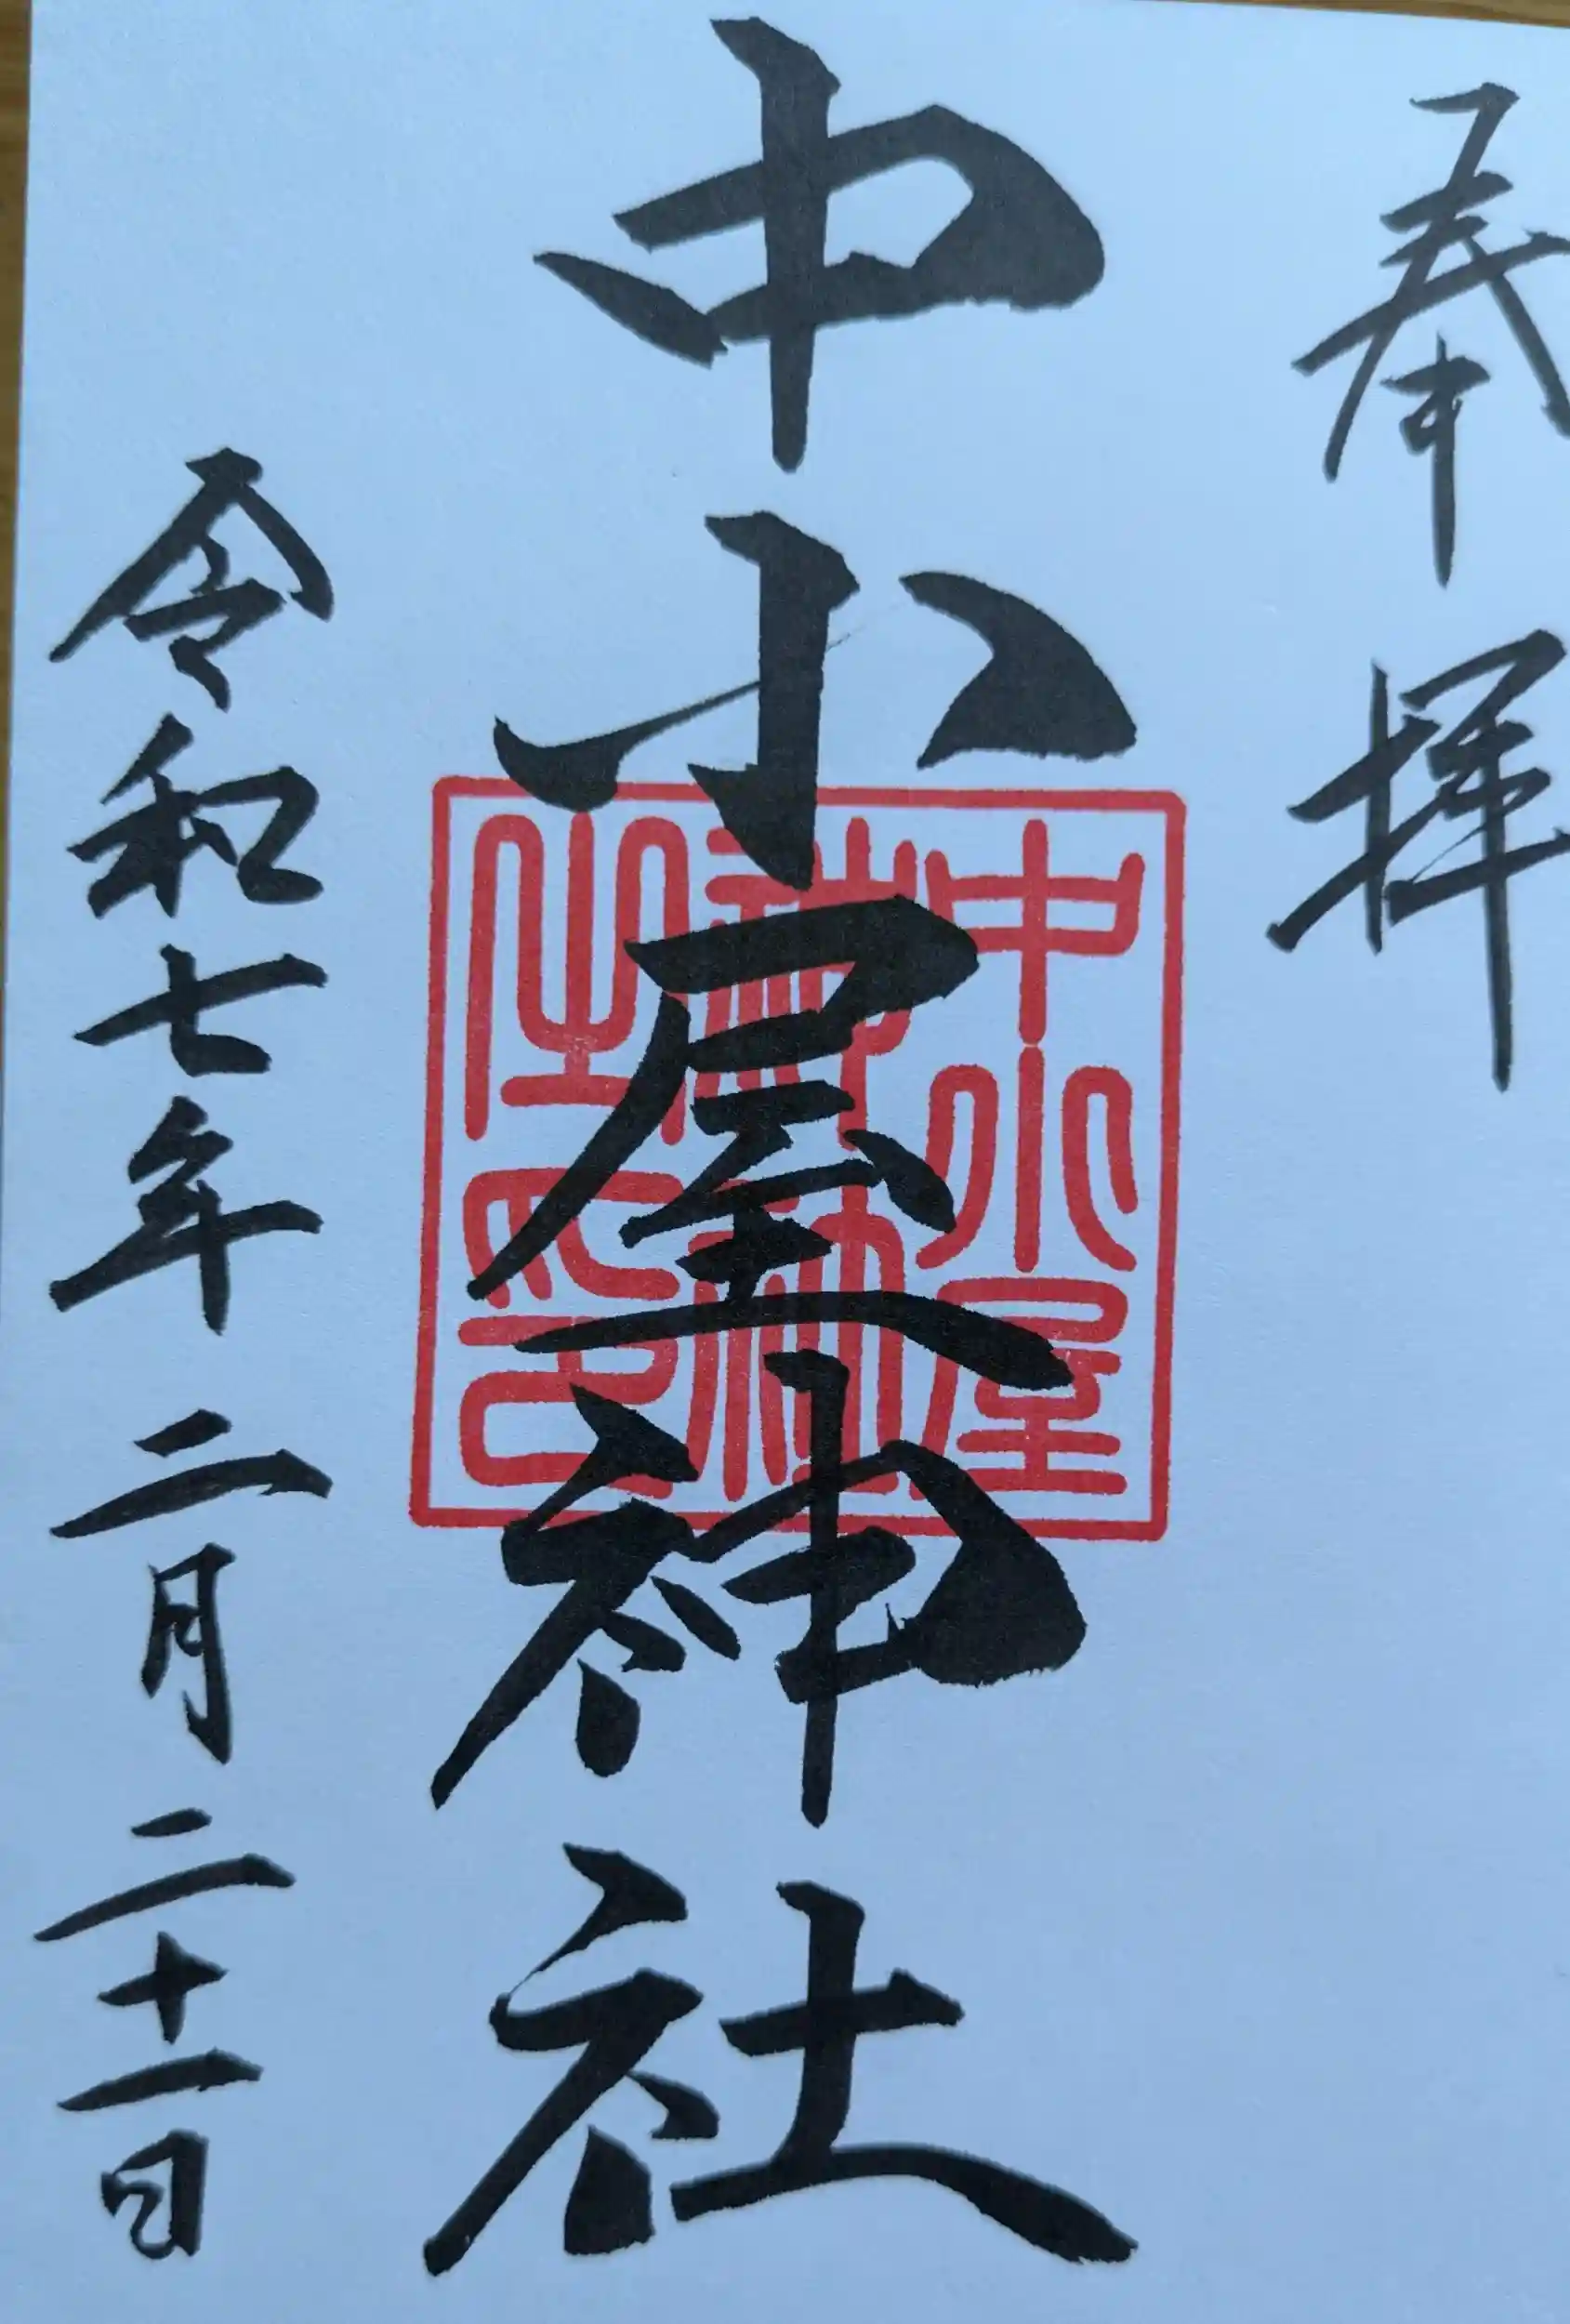 奉拝
中小屋神社
中小屋神社之印
令和七年二月二十一日